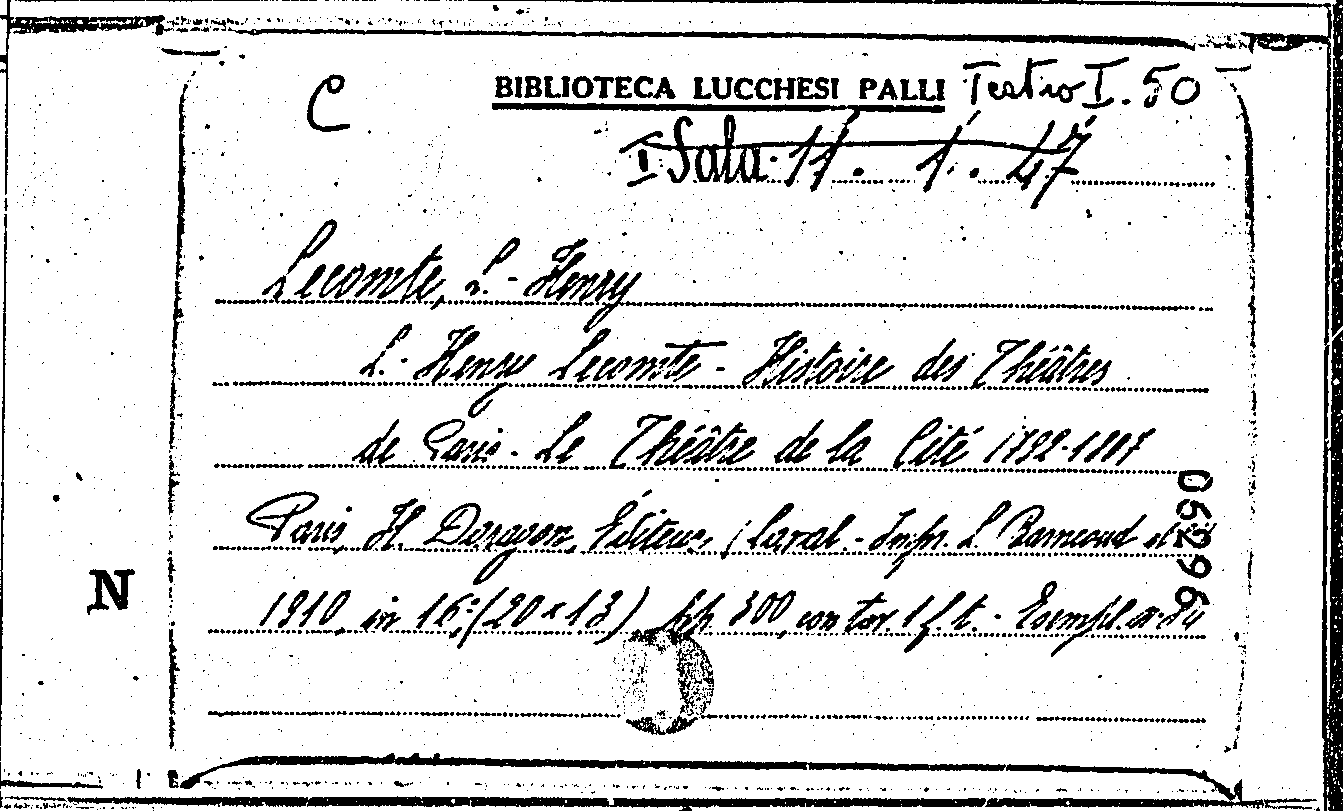 C BIBLIOTECA LUCCHESI PALLI Teatro I. 50
I Sala 11. 1. 47
Lecomte, L.- Henry
L.- Henry Lecomte - Histoire des Théâtres
de Paris - Le Théâtre de la Cité 1792-1807
Paris, H. Daragon, Éditeur, (Laval.- Impr. L. Barnéoud et
1910, in 16.º (20 x 13) pp 300, con tav. 1 f. t. - Esempl.
06296
N